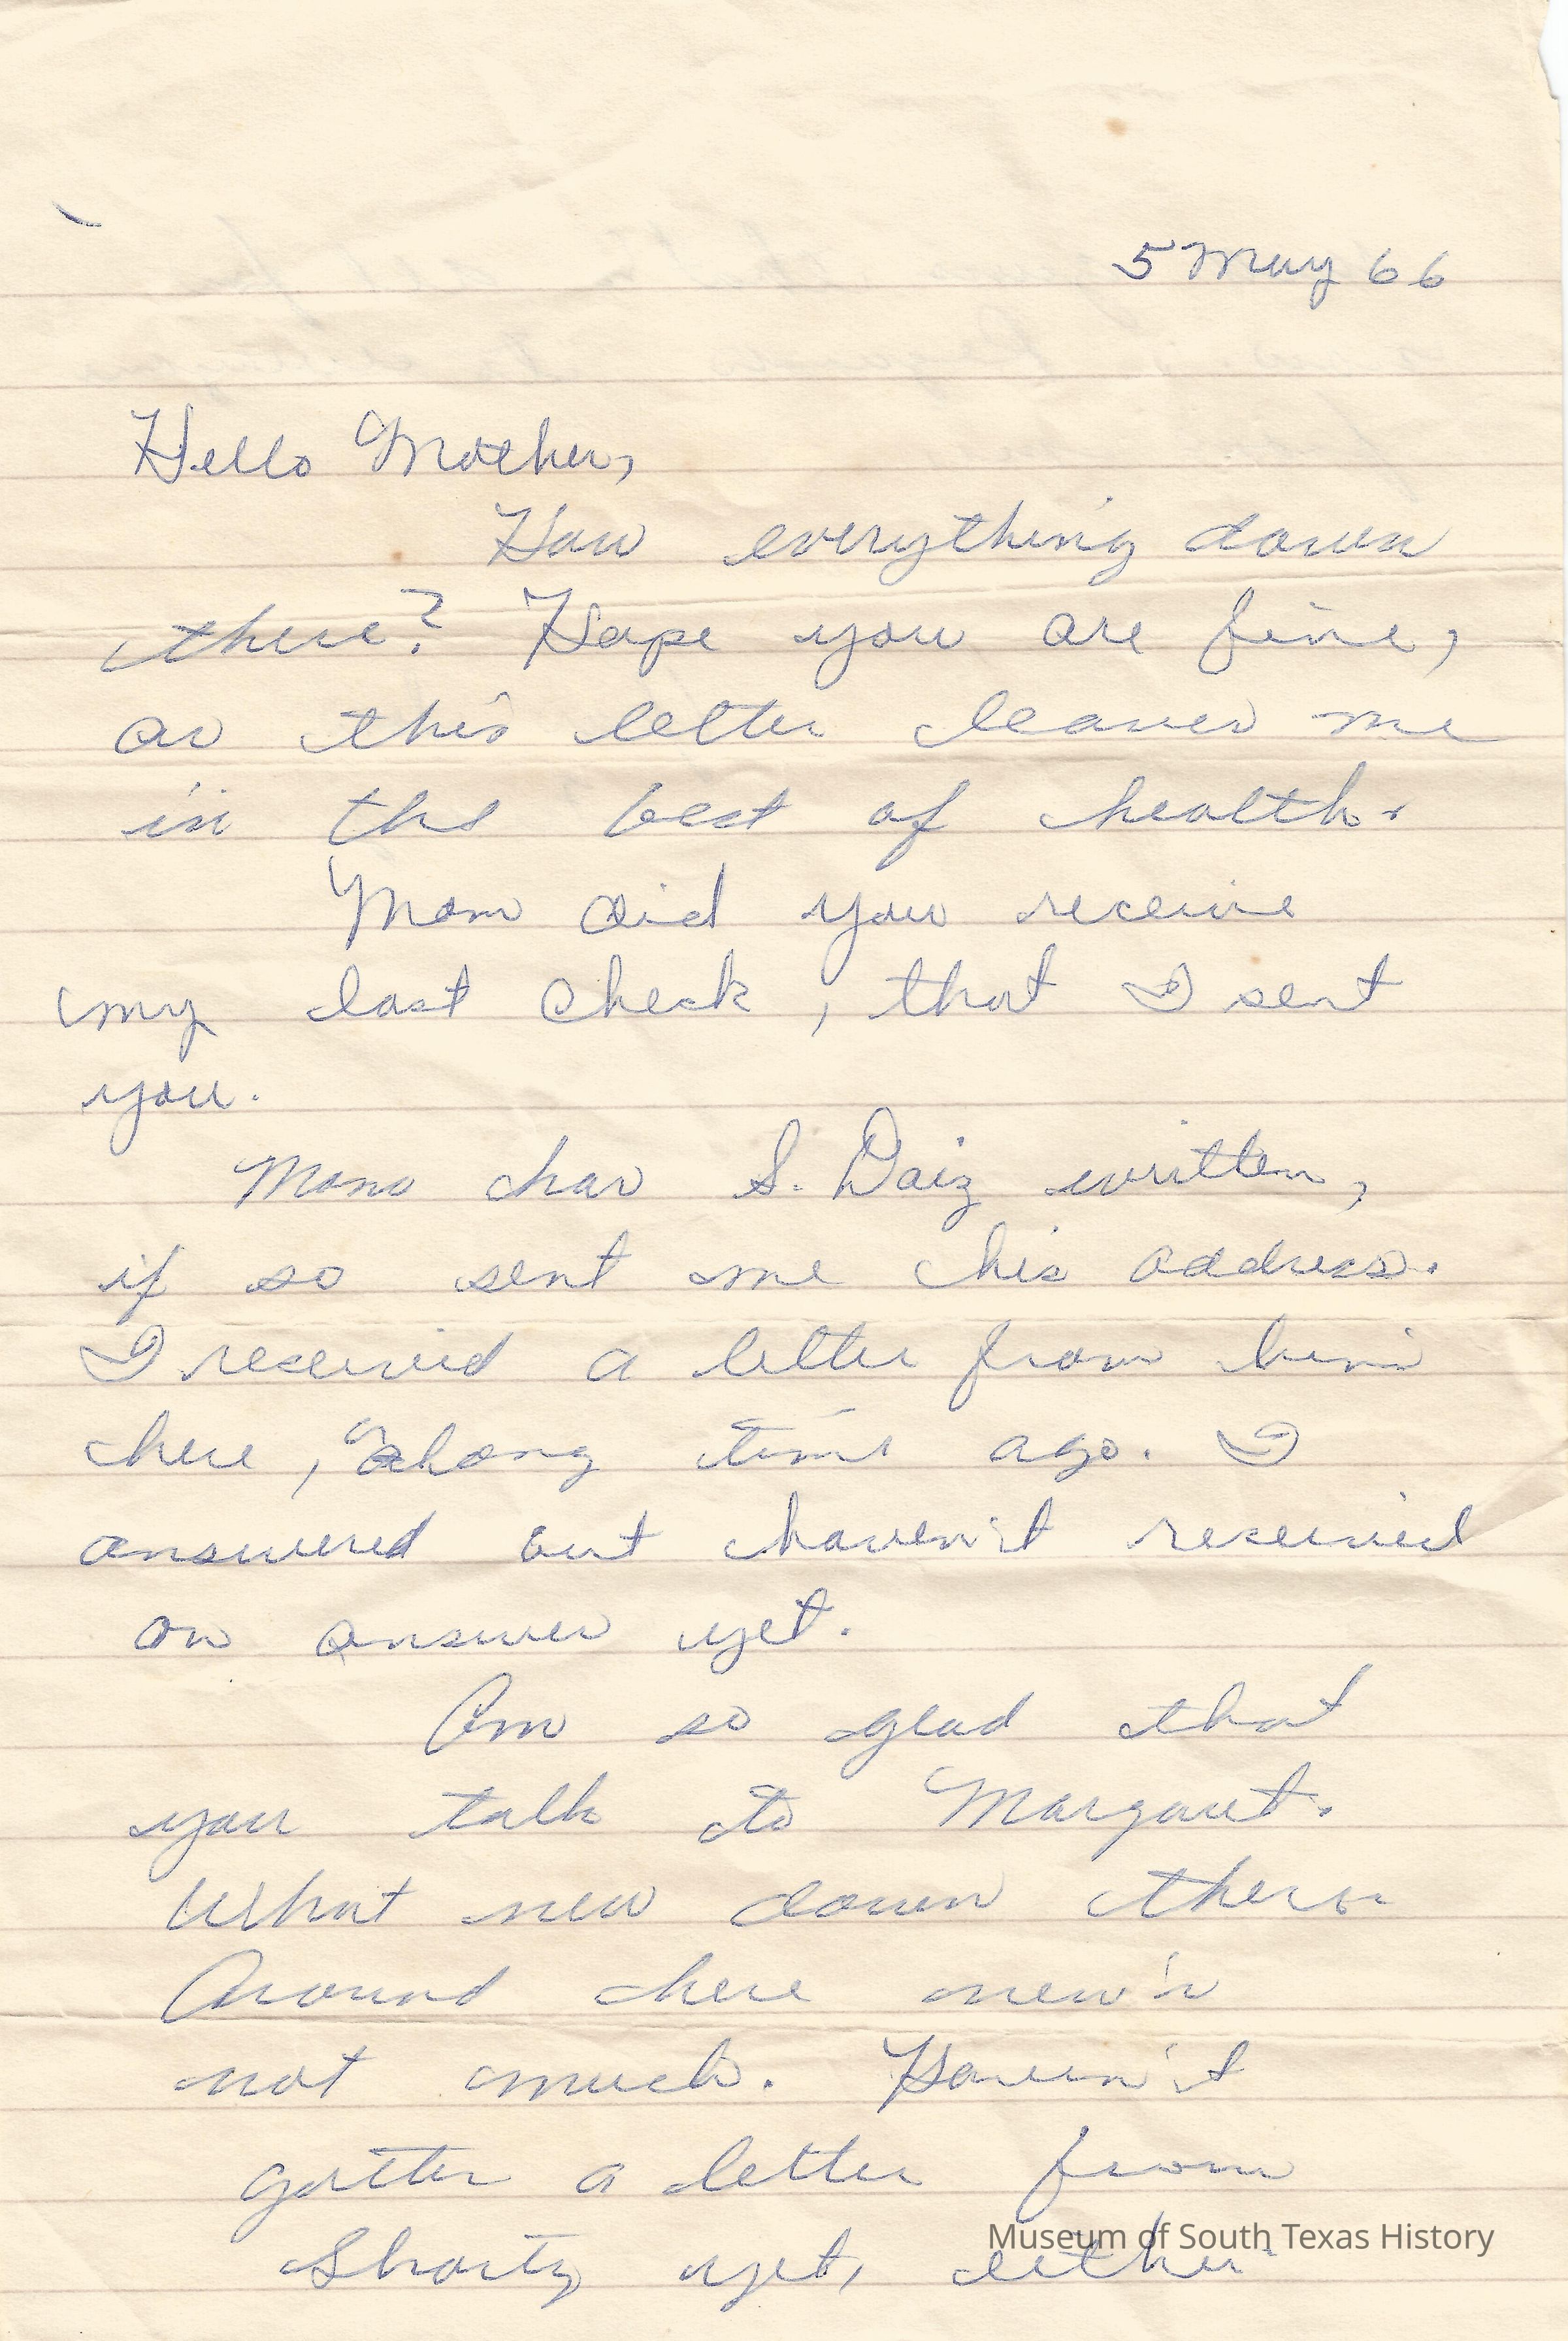 5 May 66
Hello Mother,
How everything down
there? Hope you are fine,
as this letter leaves me
in the best of health.
Mom did you receive
my last check, that I sent
you.
Mom has S. Daiz written,
if so sent me his address.
I received a letter from him
here, a long time ago. I
answered but haven't received
an answer yet.
Am so glad that
you talk to Margaret.
What new down there.
Around here new's
not much. Haven't
gotten a letter from
Shorty yet, either
Museum of South Texas History